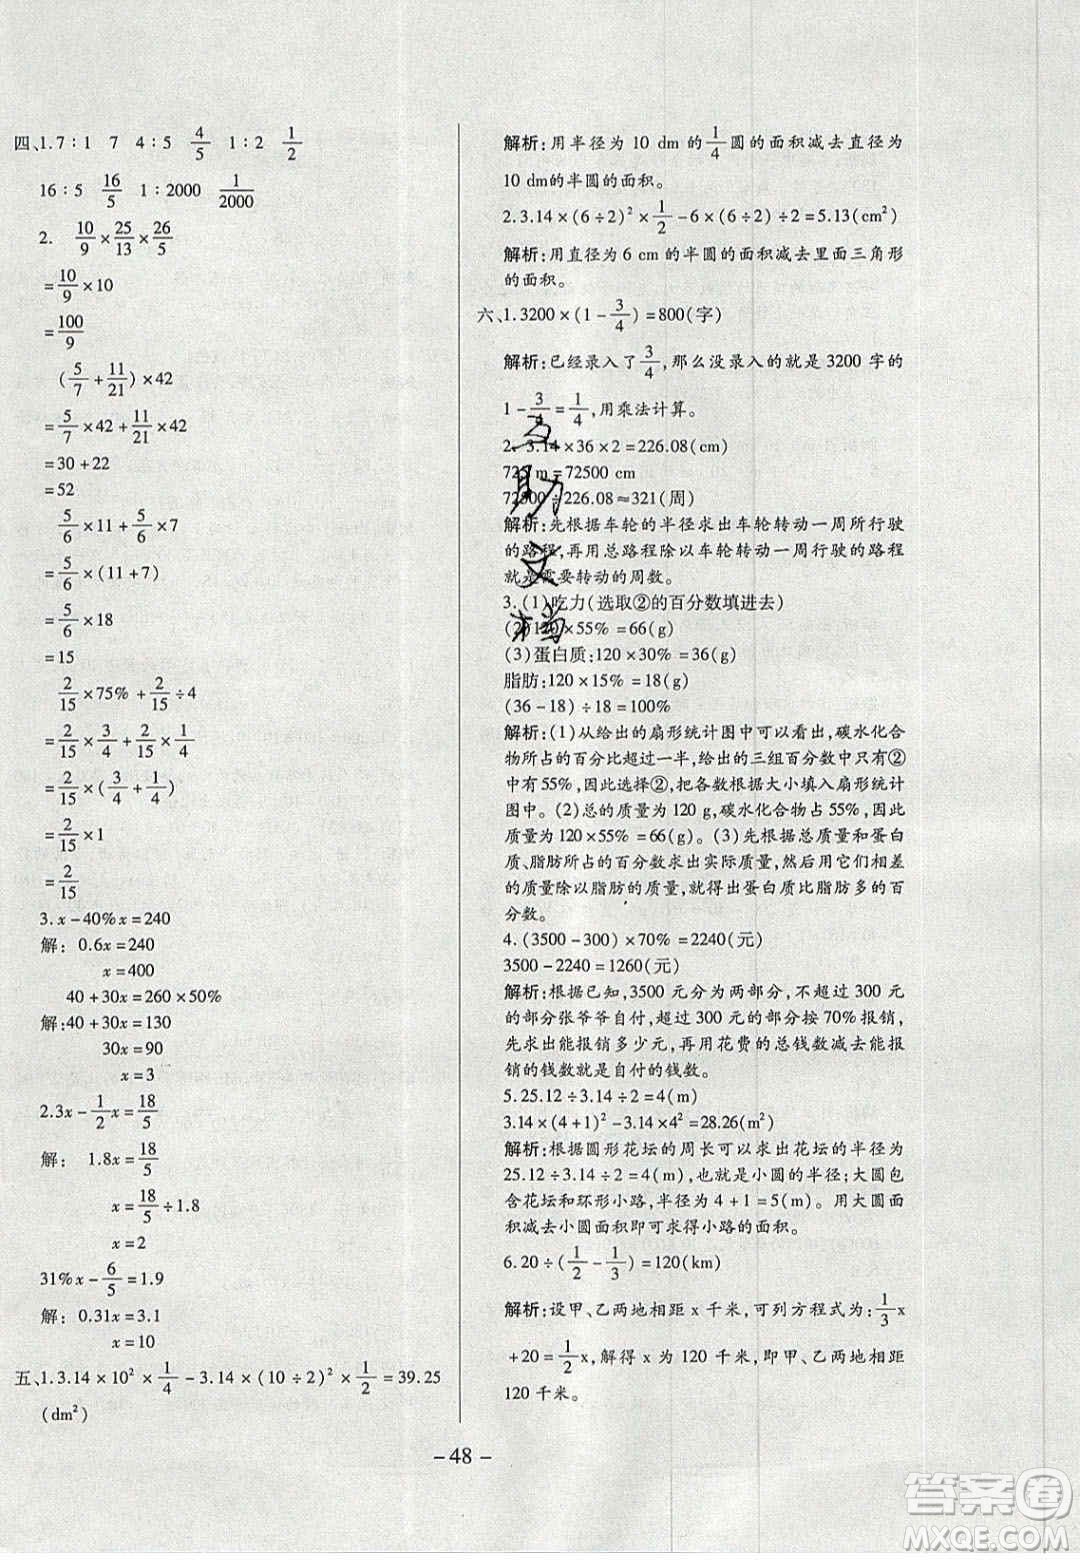 四、1.7∶1 7 4∶5 4/5 1∶2 1/2
16∶5 16/5 1∶2000 1/2000
2. 10/9×25/13×26/5
=10/9×10
=100/9
(5/7+11/21)×42
=5/7×42+11/21×42
=30+22
=52
5/6×11+5/6×7
=5/6×(11+7)
=5/6×18
=15
2/15×75%+2/15÷4
=2/15×3/4+2/15×1/4
=2/15×(3/4+1/4)
=2/15×1
=2/15
3.x-40%x=240
解: 0.6x=240
x=400
40+30x=260×50%
解:40+30x=130
30x=90
x=3
2.3x-1/2x=18/5
解: 1.8x=18/5
x=18/5÷1.8
x=2
31%x-6/5=1.9
解: 0.31x=3.1
x=10
五、1.3.14×10²×1/4-3.14×(10÷2)²×1/2=39.25
(dm²)
解析:用半径为10 dm的1/4圆的面积减去直径为
10 dm的半圆的面积。
2.3.14×(6÷2)²×1/2-6×(6÷2)÷2=5.13(cm²)
解析:用直径为6 cm的半圆的面积减去里面三角形
的面积。
六、1.3200×(1-3/4)=800(字)
解析:已经录入了3/4,那么没录入的就是3200字的
1-3/4=1/4,用乘法计算。
2. 3.14×36×2=226.08(cm)
725 m=72500 cm
72500÷226.08≈321(周)
解析:先根据车轮的半径求出车轮转动一周所行驶
的路程,再用总路程除以车轮转动一周行驶的路程
就是需要转动的周数。
3.(1)吃力(选取②的百分数填进去)
(2)120×55%=66(g)
(3)蛋白质:120×30%=36(g)
脂肪:120×15%=18(g)
(36-18)÷18=100%
解析:(1)从给出的扇形统计图中可以看出,碳水化合
物所占的百分比超过一半,给出的三组百分数中只有②
中有55%,因此选择②,把各数根据大小填入扇形统计
图中。(2)总的质量为120 g,碳水化合物占55%,因此
质量为120×55%=66(g)。(3)先根据总质量和蛋白
质、脂肪所占的百分数求出实际质量,然后用它们相差
的质量除以脂肪的质量,就得出蛋白质比脂肪多的百
分数。
4.(3500-300)×70%=2240(元)
3500-2240=1260(元)
解析:根据已知,3500元分为两部分,不超过300元
的部分张爷爷自付,超过300元的部分按70%报销,
先求出能报销多少元,再用花费的总钱数减去能报
销的钱数就是自付的钱数。
5.25.12÷3.14÷2=4(m)
3.14×(4+1)²-3.14×4²=28.26(m²)
解析:根据圆形花坛的周长可以求出花坛的半径为
25.12÷3.14÷2=4(m),也就是小圆的半径;大圆包
含花坛和环形小路,半径为4+1=5(m)。用大圆面
积减去小圆面积即可求得小路的面积。
6.20÷(1/2-1/3)=120(km)
解析:设甲、乙两地相距x千米,可列方程式为:1/3x
+20=1/2x,解得x为120千米,即甲、乙两地相距
120千米。
互助文档
-48-
答案圈
MXQE.COM